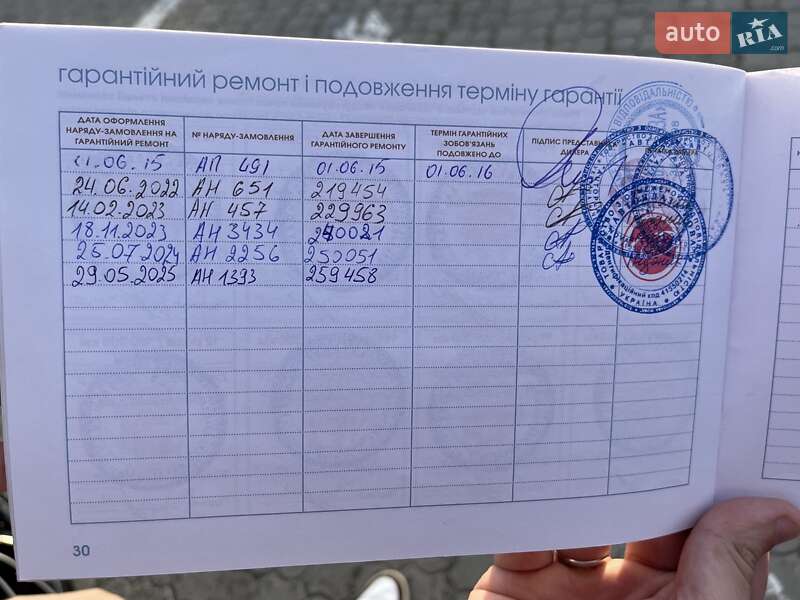 auto RIA .com
гарантійний ремонт і подовження терміну гарантії
ДАТА ОФОРМЛЕННЯ НАРЯДУ-ЗАМОВЛЕННЯ НА ГАРАНТІЙНИЙ РЕМОНТ
№ НАРЯДУ-ЗАМОВЛЕННЯ
ДАТА ЗАВЕРШЕННЯ ГАРАНТІЙНОГО РЕМОНТУ
ТЕРМІН ГАРАНТІЙНИХ ЗОБОВ'ЯЗАНЬ ПОДОВЖЕНО ДО
ПІДПИС ПРЕДСТАВНИКА ДИЛЕРА
01.06.15 АП 491 01.06.15 01.06.16
24.06.2022 АН 651 219454
14.02.2023 АН 457 229963
18.11.2023 АН 3434 240021
25.07.2024 АН 2256 250051
29.05.2025 АН 1393 259458
ВІДПОВІДАЛЬНІСТЮ
УКРАЇНА
30